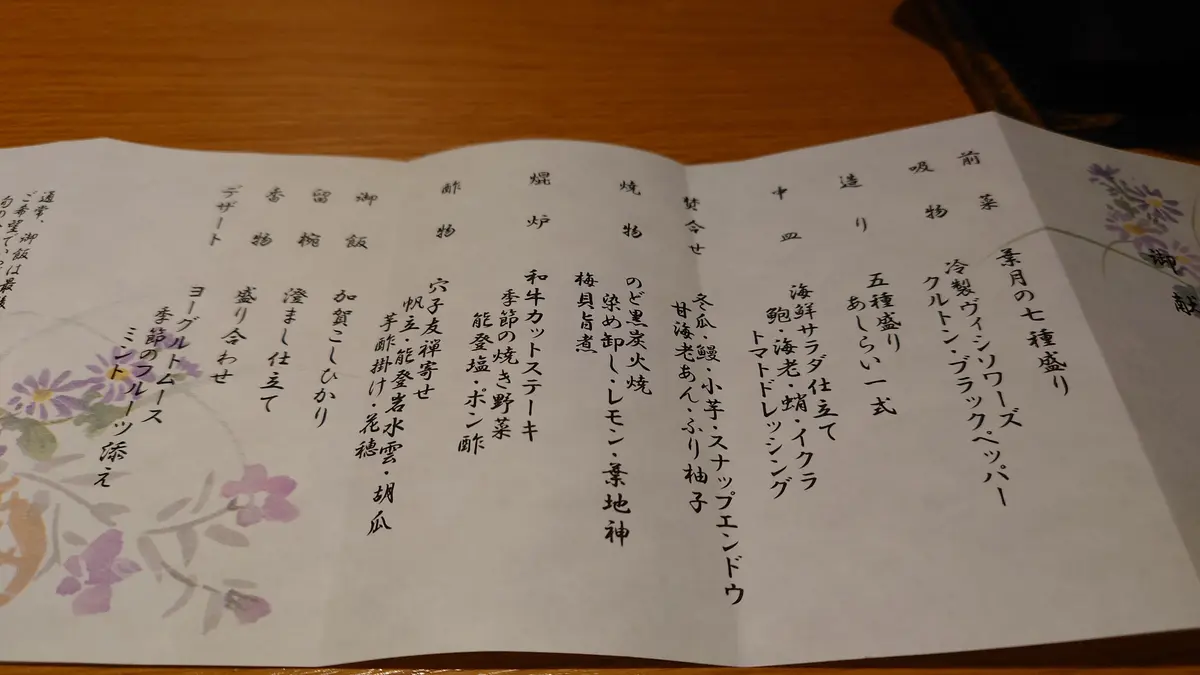 御献
前菜
葉月の七種盛り
吸物
冷製ヴィシソワーズ
クルトン・ブラックペッパー
造り
五種盛り
あしらい一式
中皿
海鮮サラダ仕立て
鮑・海老・蛸・イクラ
トマトドレッシング
焚合せ
冬瓜・鰻・小芋・スナップエンドウ
甘海老あん・ふり柚子
焼物
のど黒炭火焼
染め卸し・レモン・葉地神
梅貝旨煮
焜炉
和牛カットステーキ
季節の焼き野菜
能登塩・ポン酢
酢物
穴子友禅寄せ
帆立・能登岩水雲・胡瓜
芋酢掛け・花穂
御飯
加賀こしひかり
留椀
澄まし仕立て
香物
盛り合わせ
デザート
ヨーグルトムース
季節のフルーツ添え
ミント
通常、御飯は最後
ご希望で